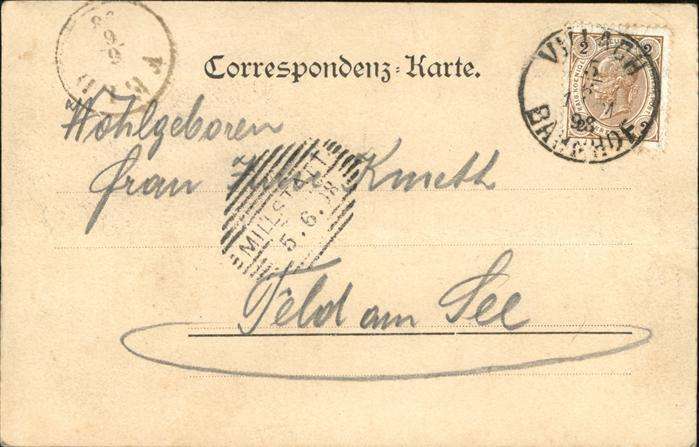 Correspondenz-Karte.
VILLACH
BAHNHOF
98
2 2
2
Wohlgeboren
Frau Kmeth
MILLSTATT
5.6.98
Feld am See